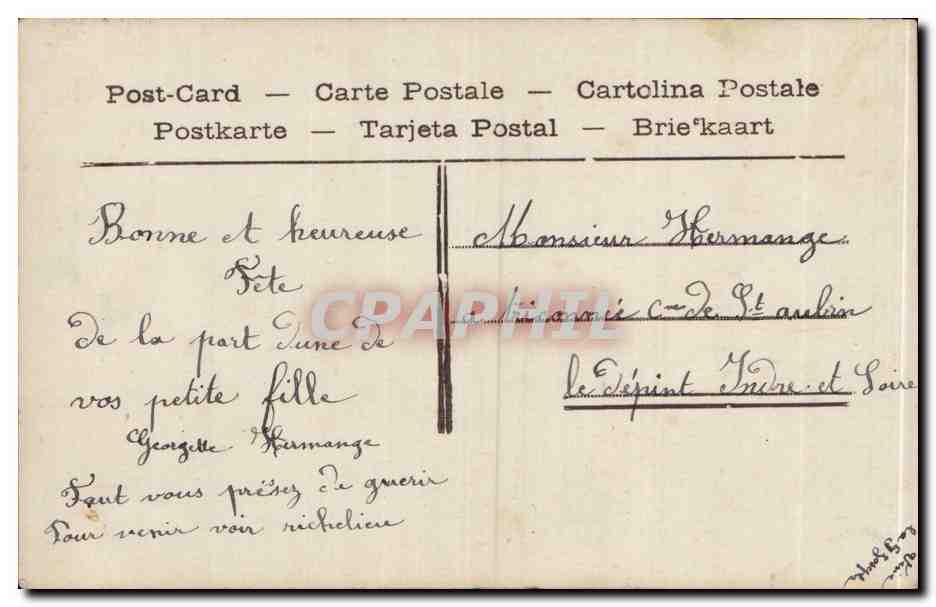 Post-Card — Carte Postale — Cartolina Postale
Postkarte — Tarjeta Postal — Briefkaart
Bonne et heureuse
Fête
de la part dune de
vos petite fille
Georgette Hermange
Faut vous présez de guerir
Pour venir voir richelieu
Monsieur Hermange
a cne de St. aubin
le dépint Indre et Loire
CPAPHIL
la St